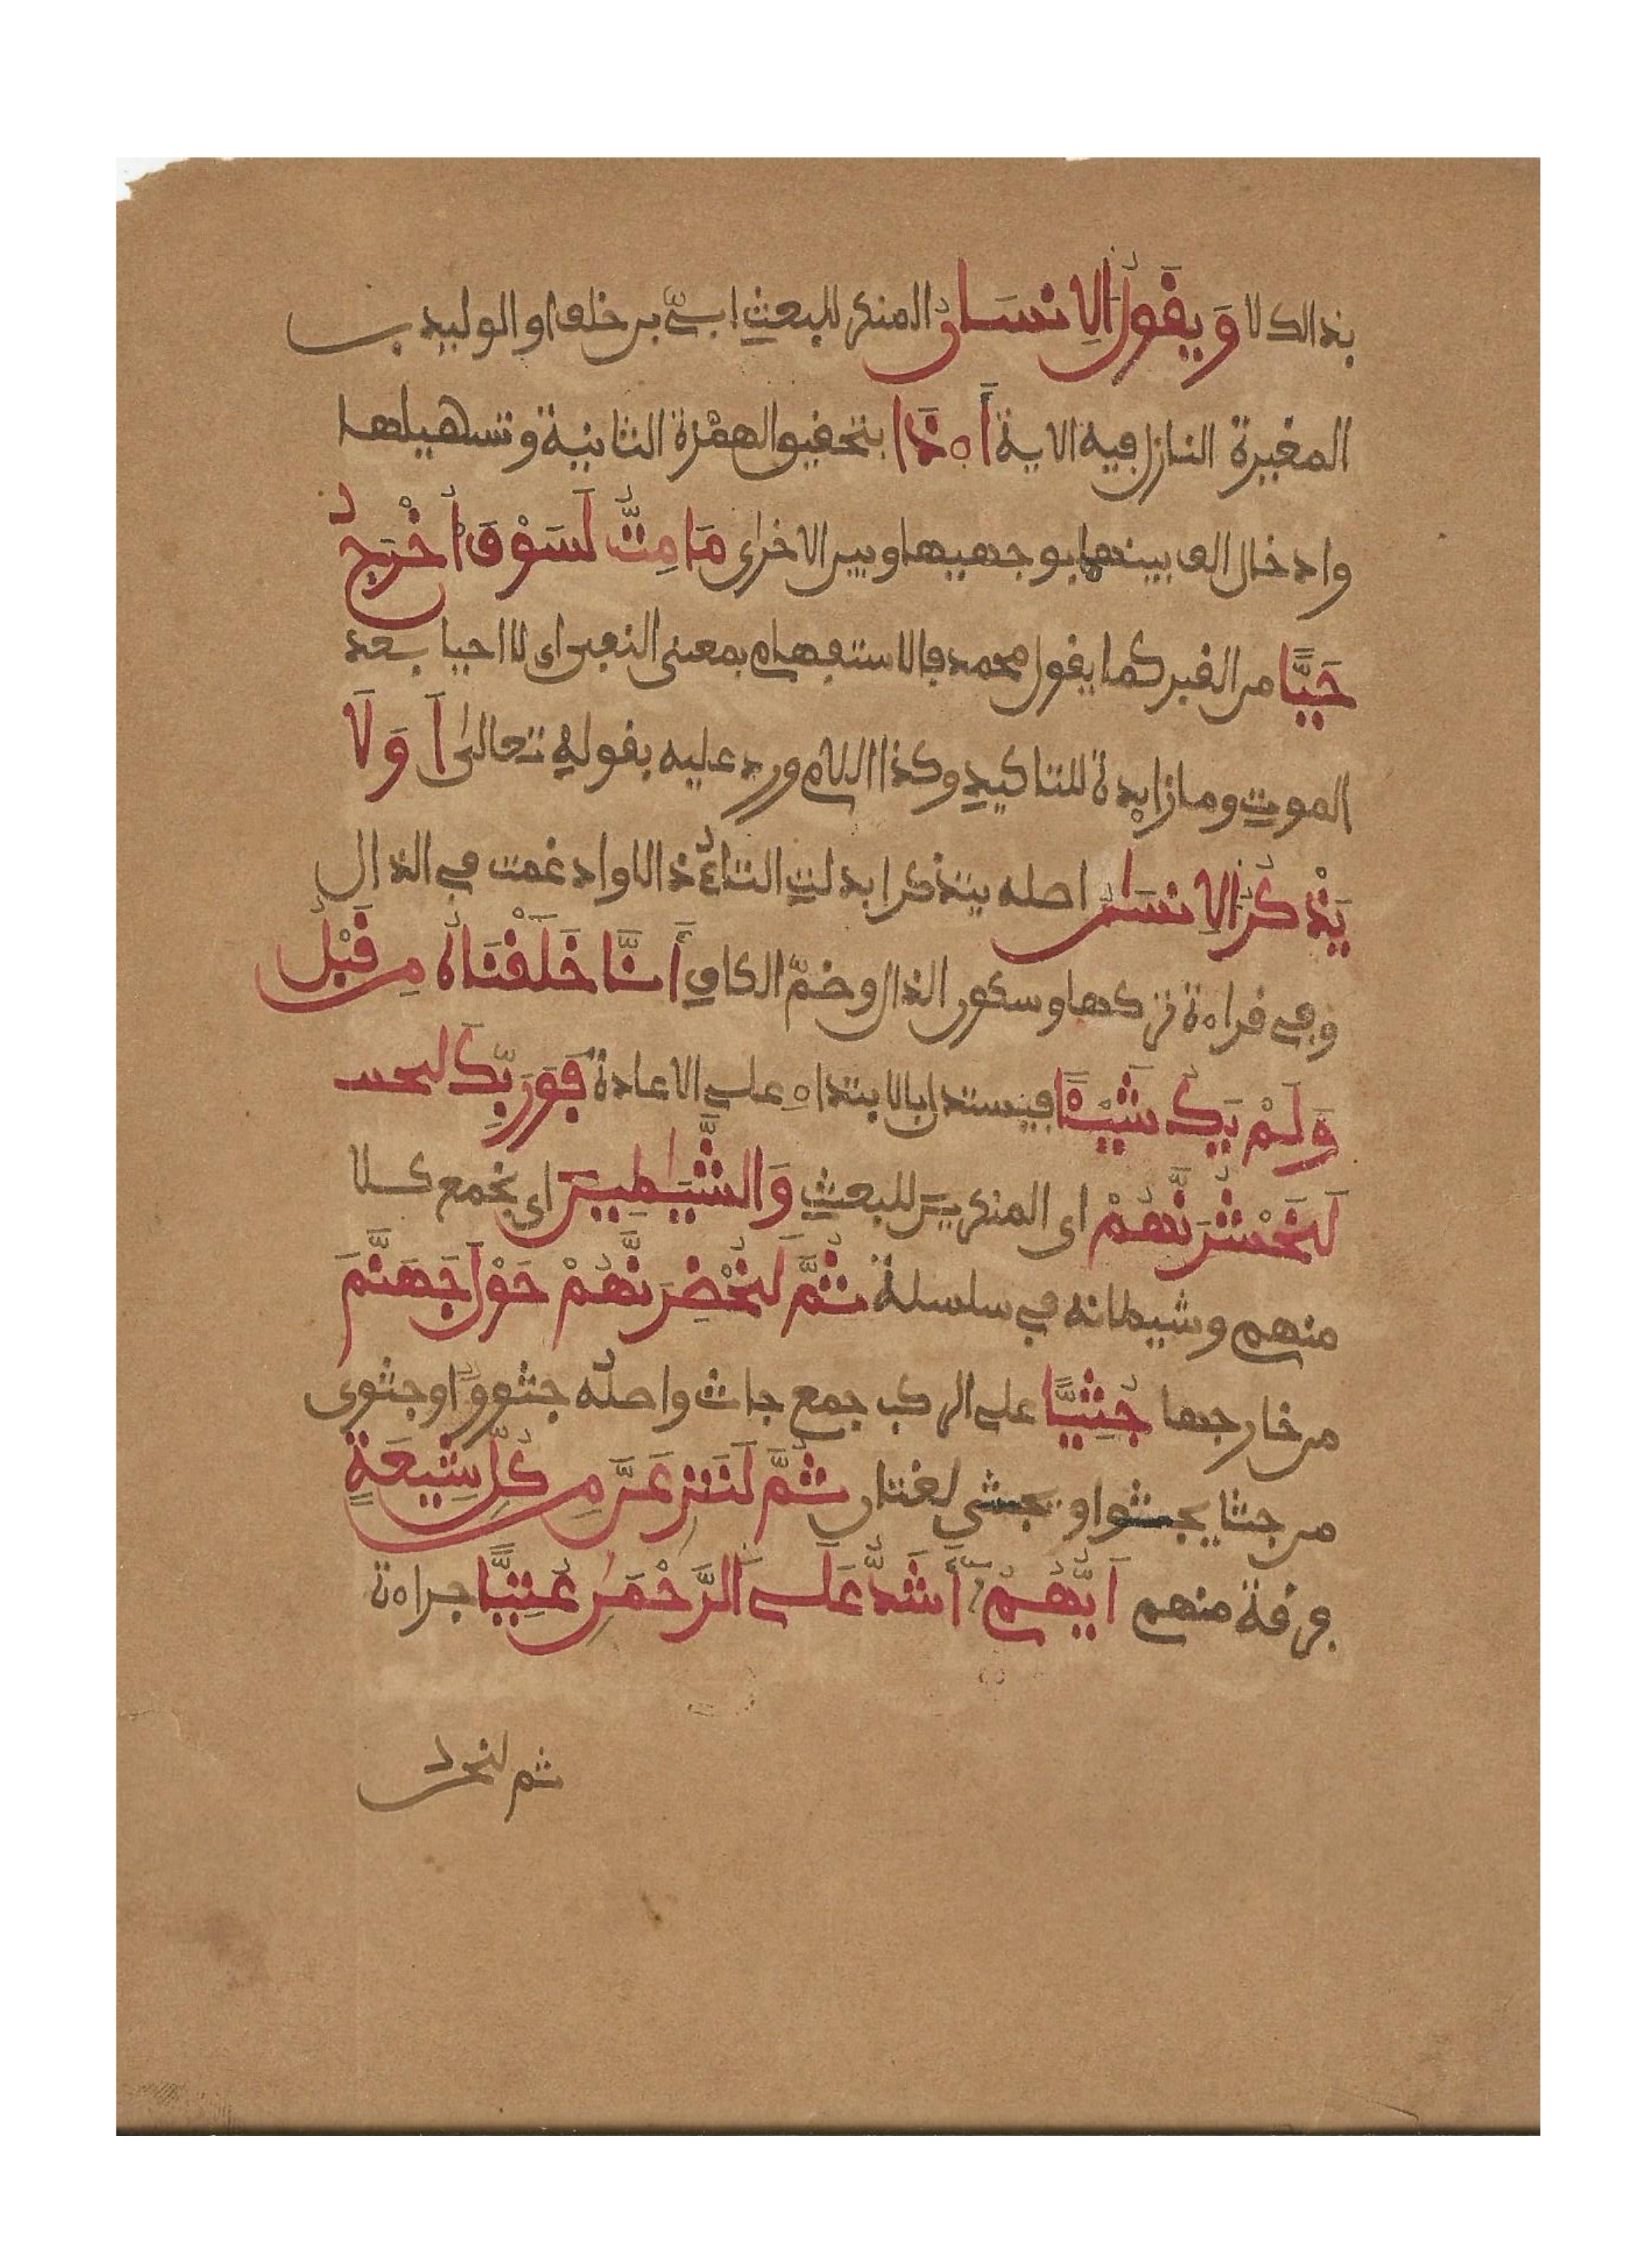 بذالك لا وَيَقُولُ الِانسَـٰنُ المنكر للبعث ابىّ بن خلف او الوليد بـ
المغيرة النازل فيه الاية أَ.ذَا بتحقيق الهمزة الثانية وتسهيلها
وادخال الف بينهما بوجهيها وبين الاخرى مَا مِتُّ لَسَوْفَ أُخْرَجُ
حَيًّا من القبر كما يقول محمد فالاستفهام بمعنى النفي اى لا احيا بعد
الموت وما زايدة للتاكيد وكذا اللام ورد عليه بقوله تعالى اَ وَلَا
يَذْكُرُ الِانسَـٰنُ اصله يتذكر ابدلت التاءُ ذالا وادغمت في الذال
وفي قراءة تركها وسكون الذال وضمّ الكاف أَنَّا خَلَقْنَاهُ مِن قَبْلُ
وَلَمْ يَكُ شَيْـًٔا فيستدل بالابتداءِ على الاعادة فَوَرَبِّكَ لنحـ
لَنَحْشُرَنَّهُمْ اى المنكرين للبعث وَالشَّيَـٰطِينَ اى نجمع كلا
منهم وشيطانه في سلسلة ثُمَّ لَنُحْضِرَنَّهُمْ حَوْلَ جَهَنَّمَ
من خارجها جُثِيًّا على الركب جمع جاث واصلُه جثووٌ او جثوى
من جثا يجثوا او يجثي لغتان ثُمَّ لَنَنزِعَنَّ مِن كُلِّ شِيعَةٍ
فرقة منهم اَيُّهُمْ أَشَدُّ عَلَى الرَّحْمَـٰنِ عُتِيًّا جراءة
ثم لنحن